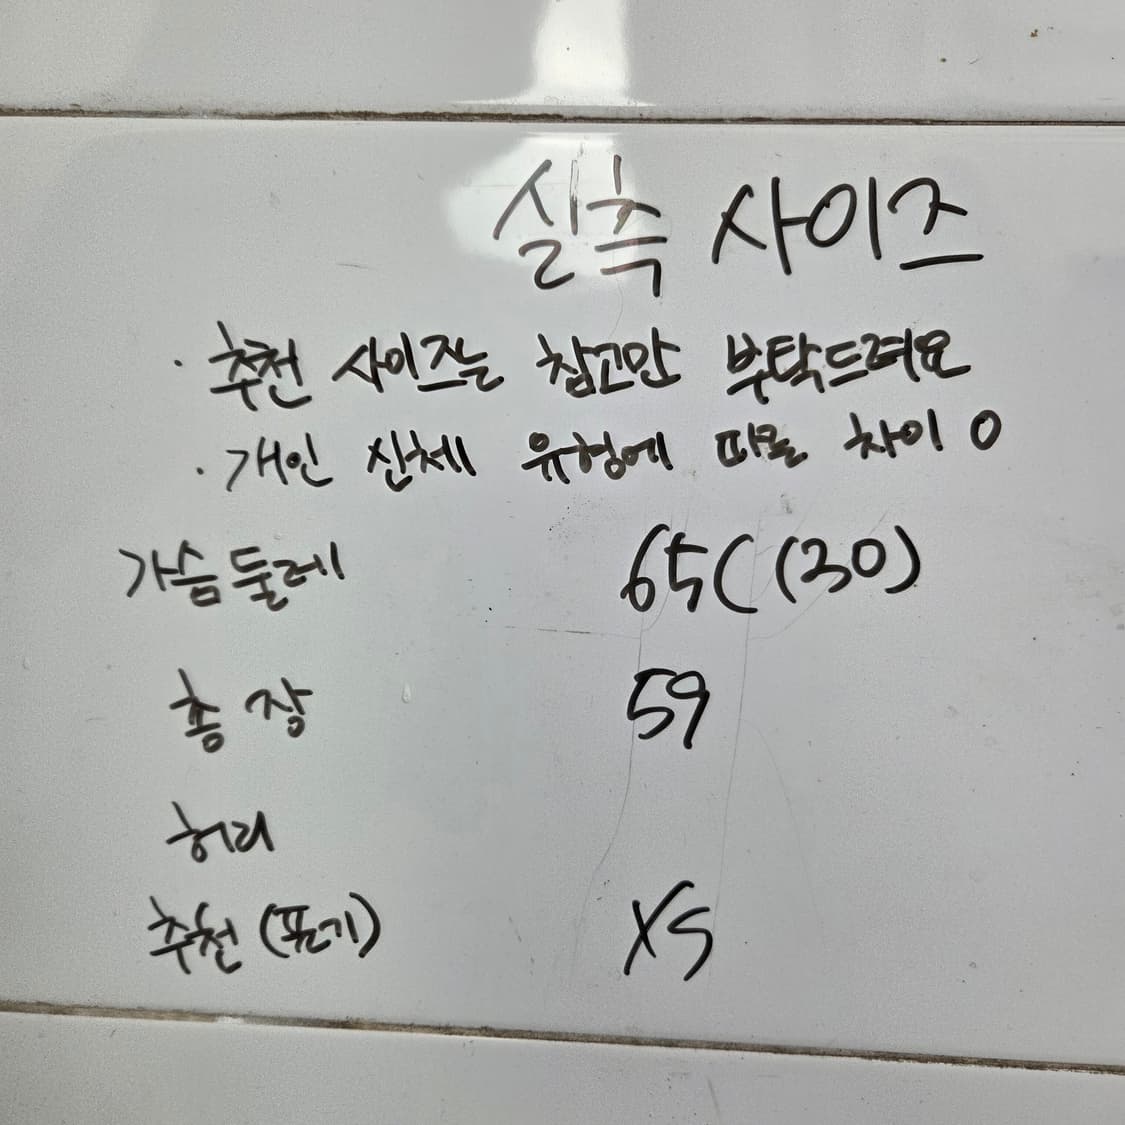 실측 사이즈
· 추천 사이즈는 참고만 부탁드려요
· 개인 신체 유형에 따를 차이 O
가슴둘레 65C (30)
총장 59
허리
추천(표기) XS